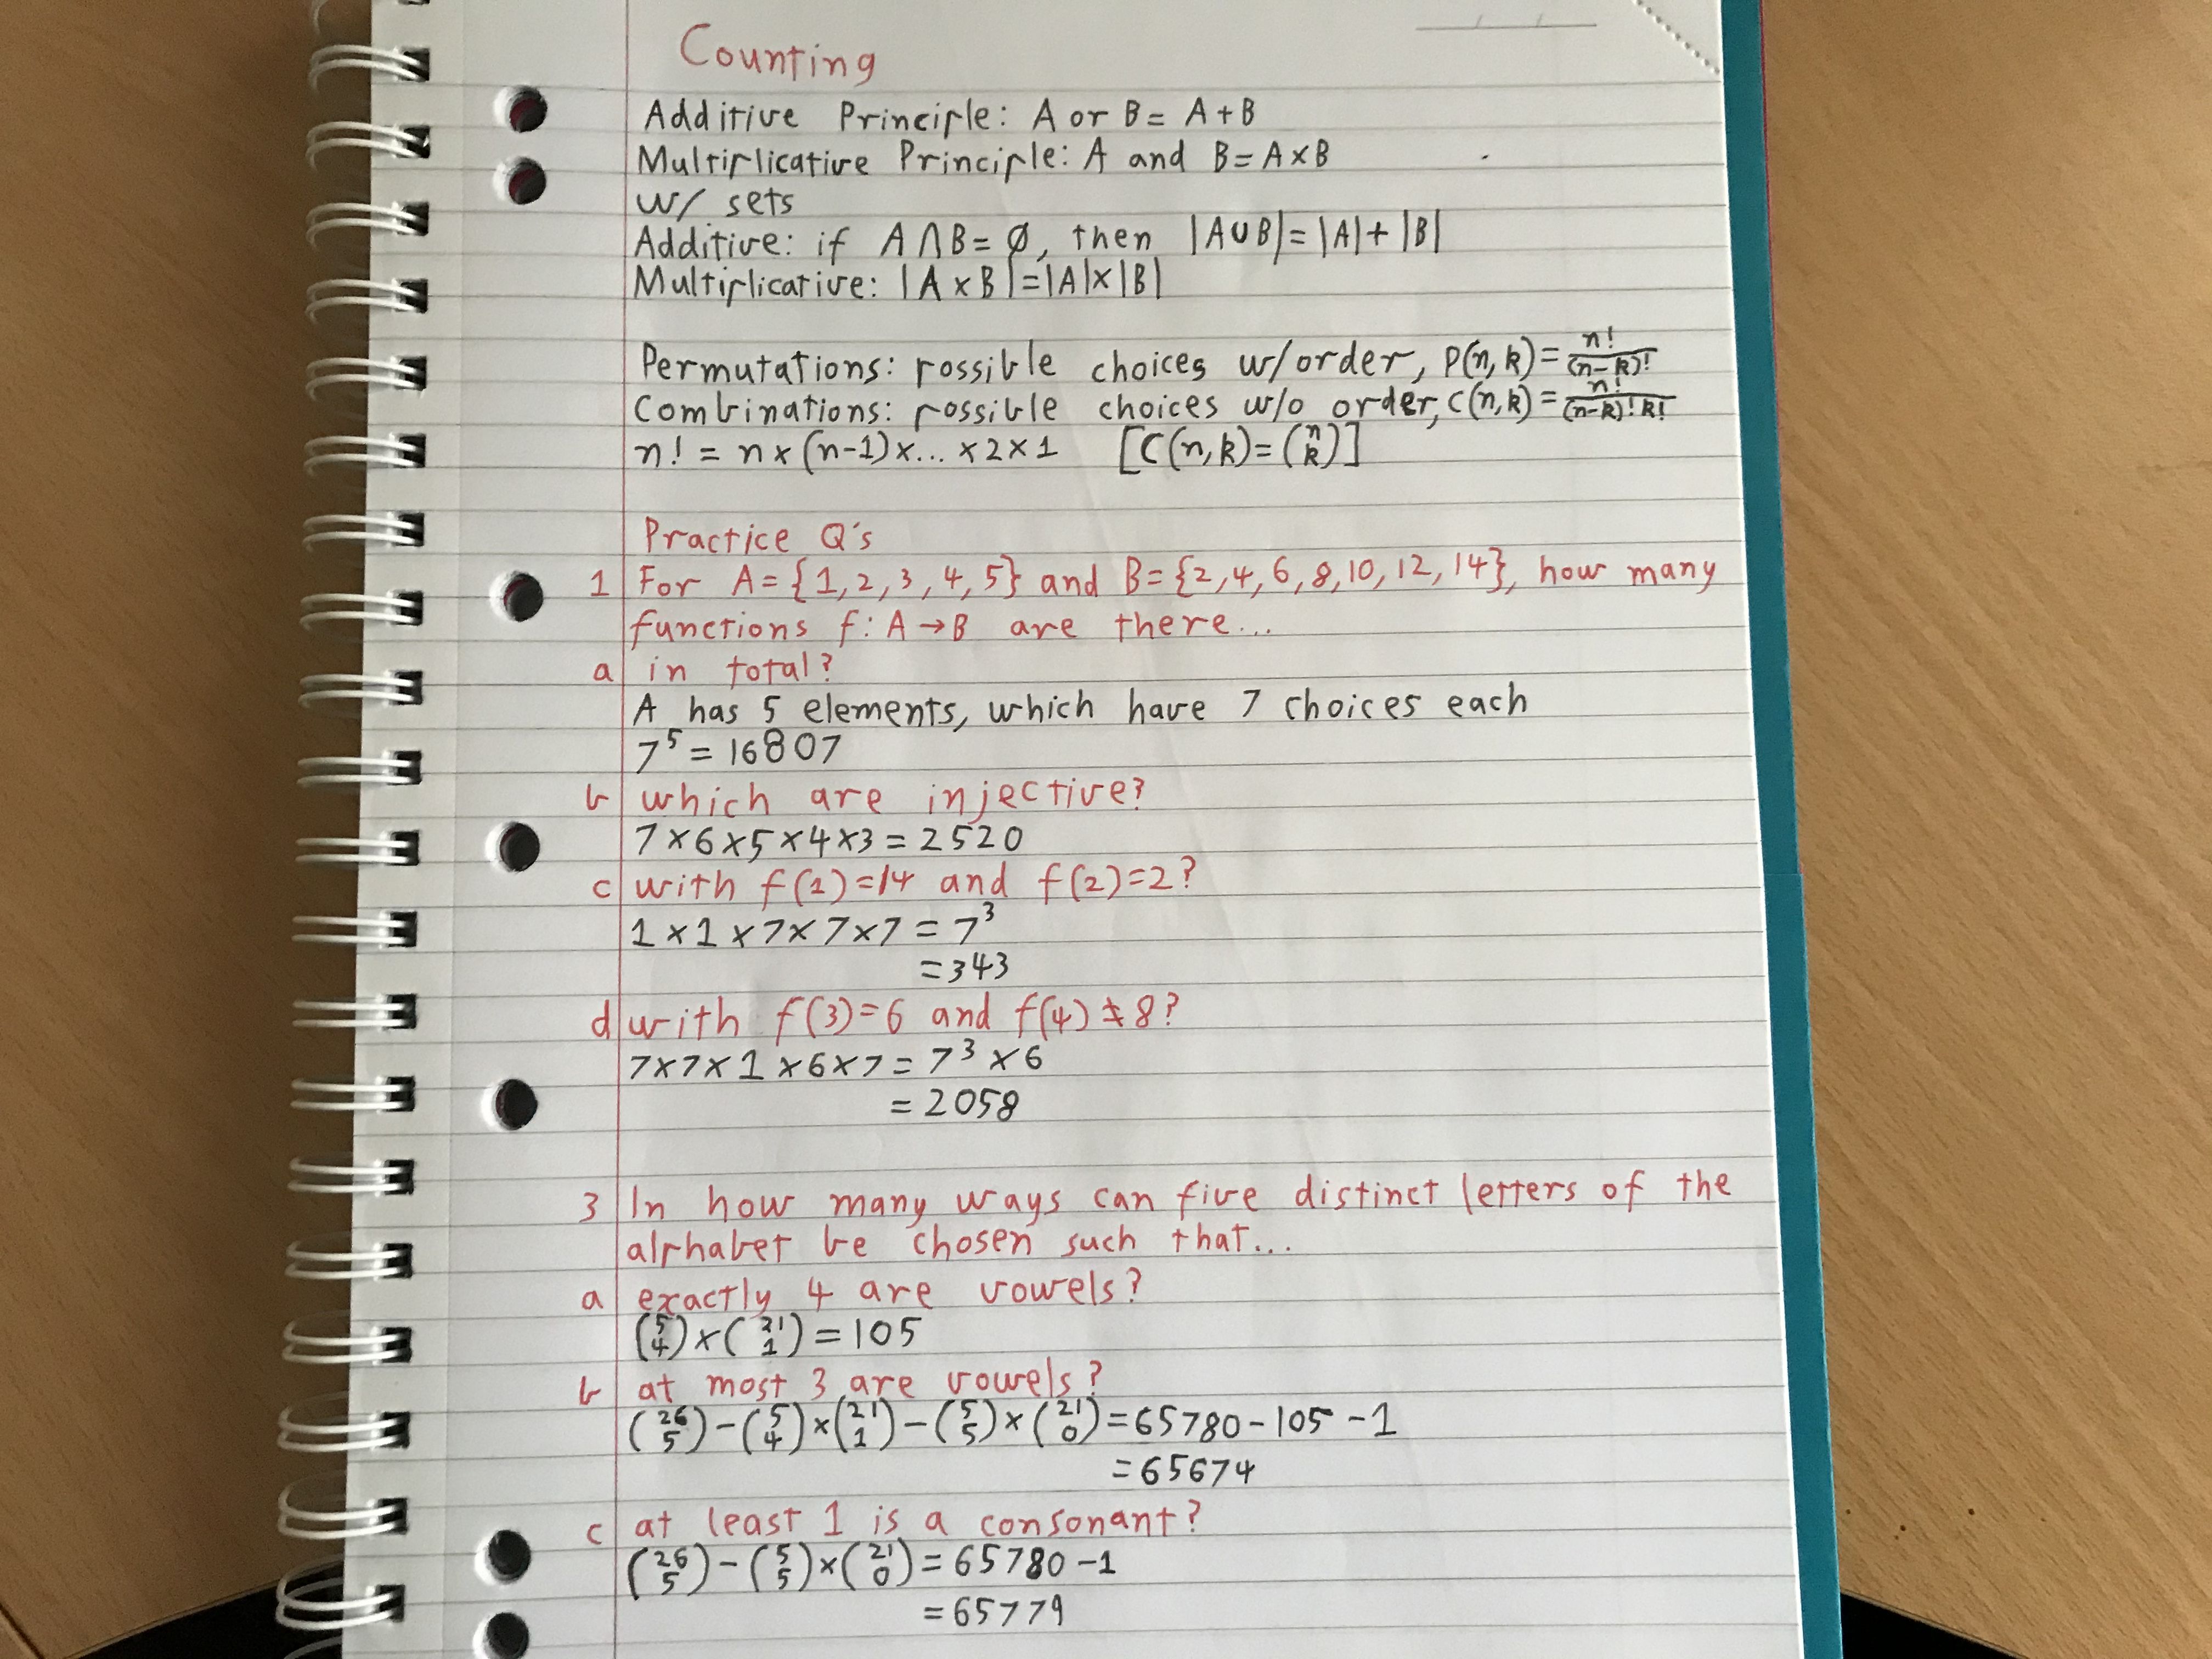 Counting
Additive Principle: A or B = A + B
Multiplicative Principle: A and B = A × B
w/ sets
Additive: if A ∩ B = ∅, then |A ∪ B| = |A| + |B|
Multiplicative: |A × B| = |A| × |B|
Permutations: possible choices w/order, P(n, k) = n!/(n-k)!
Combinations: possible choices w/o order, C(n, k) = n!/(n-k)!k!
n! = n × (n-1) × ... × 2 × 1 [C(n, k) = (n k)]
Practice Q's
1 For A = {1, 2, 3, 4, 5} and B = {2, 4, 6, 8, 10, 12, 14}, how many
functions f: A → B are there...
a in total?
A has 5 elements, which have 7 choices each
7⁵ = 16807
b which are injective?
7 × 6 × 5 × 4 × 3 = 2520
c with f(1) = 14 and f(2) = 2?
1 × 1 × 7 × 7 × 7 = 7³
= 343
d with f(3) = 6 and f(4) ≠ 8?
7 × 7 × 1 × 6 × 7 = 7³ × 6
= 2058
3 In how many ways can five distinct letters of the
alphabet be chosen such that...
a exactly 4 are vowels?
(5 4) × (21 1) = 105
b at most 3 are vowels?
(26 5) - (5 4) × (21 1) - (5 5) × (21 0) = 65780 - 105 - 1
= 65674
c at least 1 is a consonant?
(26 5) - (5 5) × (21 0) = 65780 - 1
= 65779